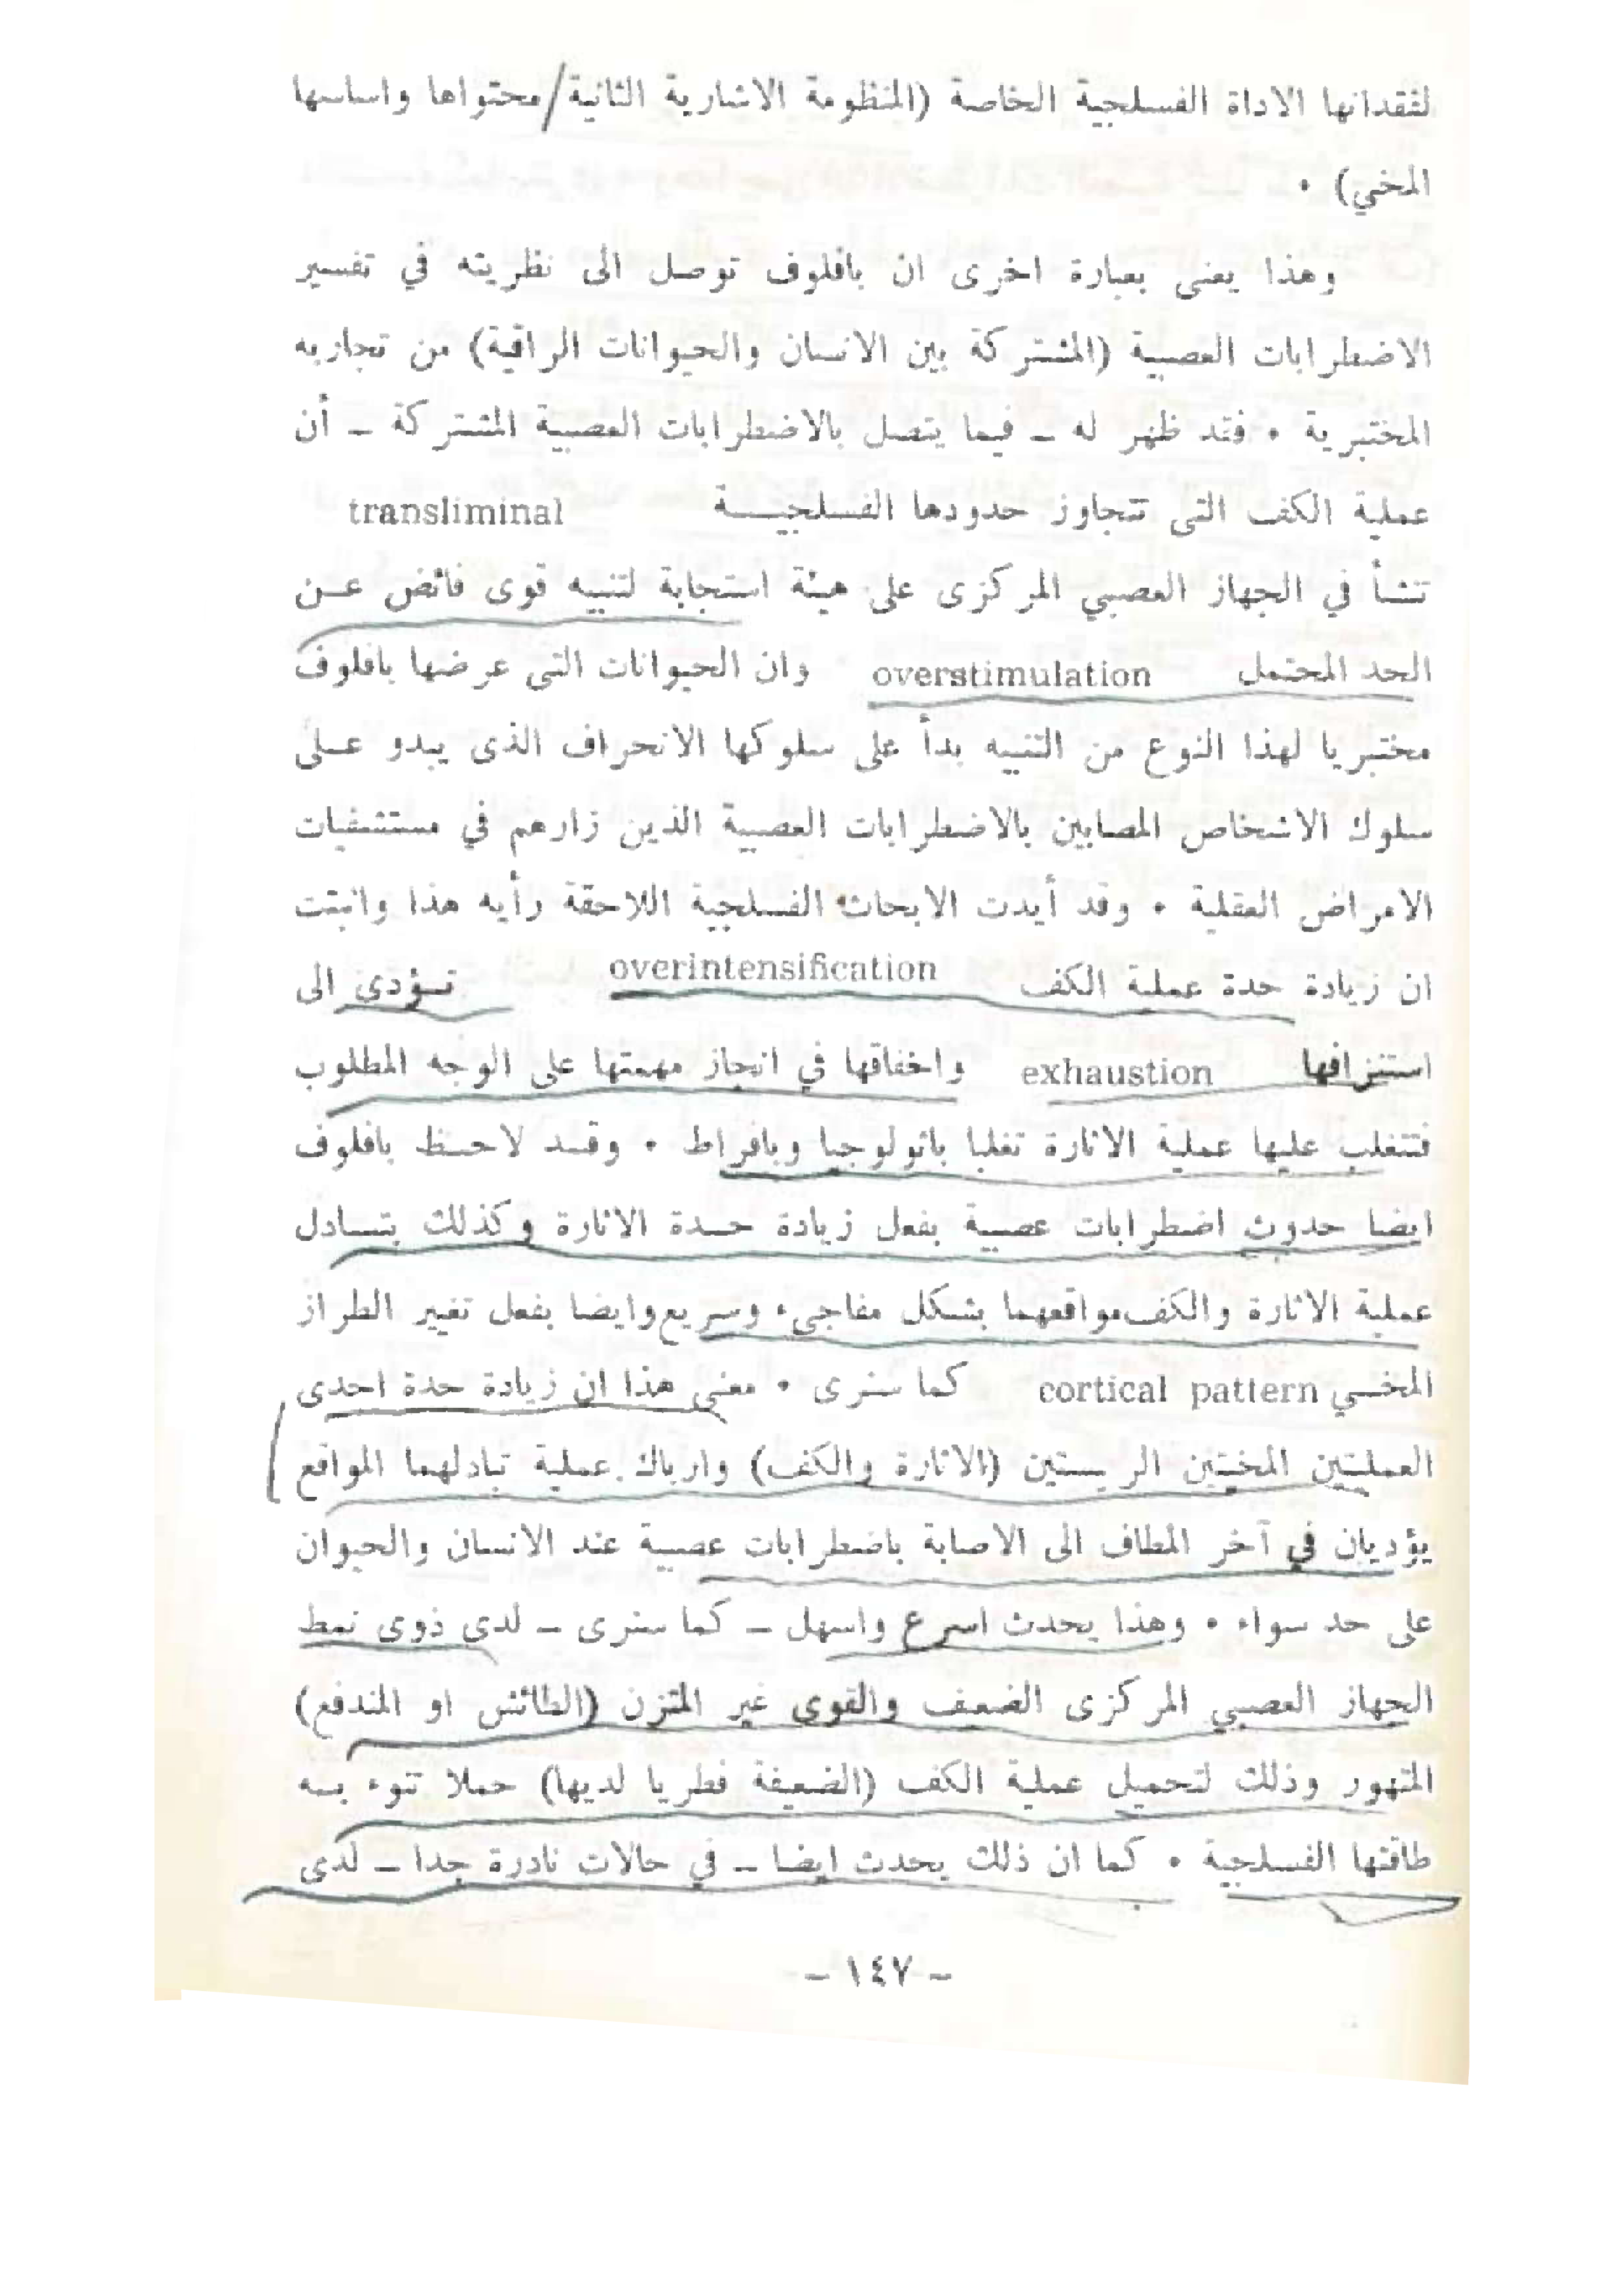 لفقدانها الاداة الفسلجية الخاصة (المنظومة الاشارية الثانية/محتواها واساسها
المخي) ٠
وهذا يعنى بعبارة اخرى ان بافلوف توصل الى نظريته في تفسير
الاضطرابات العصبية (المشتركة بين الانسان والحيوانات الراقية) من تجاربه
المختبرية ٠ فقد ظهر له ــ فيما يتصل بالاضطرابات العصبية المشتركة ــ أن
عملية الكف التى تتجاوز حدودها الفسلجيـــة transliminal
تنشأ في الجهاز العصبي المركزى على هيئة استجابة لتنبيه قوى فائض عـن
الحد المحتمل overstimulation وان الحيوانات التى عرضها بافلوف
مختبريا لهذا النوع من التنبيه بدأ على سلوكها الانحراف الذى يبدو عـلى
سلوك الاشخاص المصابين بالاضطرابات العصبية الذين زارهم في مستشفيات
الامراض العقلية ٠ وقد أيدت الابحاث الفسلجية اللاحقة رأيه هذا واثبتت
ان زيادة حدة عملية الكف overintensification تـؤدي الى
استنزافها exhaustion واخفاقها في انجاز مهمتها على الوجه المطلوب
فتتغلب عليها عملية الاثارة تغلبا باثولوجيا وبافراط ٠ وقـد لاحـظ بافلوف
ايضا حدوث اضطرابات عصبية بفعل زيادة حـدة الاثارة وكذلك بتبـادل
عملية الاثارة والكف مواقعهما بشكل مفاجىء وسريع وايضا بفعل تغيير الطراز
المخـي cortical pattern كما سنرى ٠ معنى هذا ان زيادة حدة احدى
العمليتين المخيتين الرئيستين (الاثارة والكف) وارباك عملية تبادلهما المواقع
يؤديان في آخر المطاف الى الاصابة باضطرابات عصبية عند الانسان والحيوان
على حد سواء ٠ وهذا يحدث اسرع واسهل ــ كما سنرى ــ لدى ذوى نمط
الجهاز العصبي المركزى الضعيف والقوى غير المتزن (الطائش او المندفع)
المتهور وذلك لتحميل عملية الكف (الضعيفة فطريا لديها) حملا تنوء بـه
طاقتها الفسلجية ٠ كما ان ذلك يحدث ايضا ــ في حالات نادرة جدا ــ لدى
ــ ١٤٧ ــ